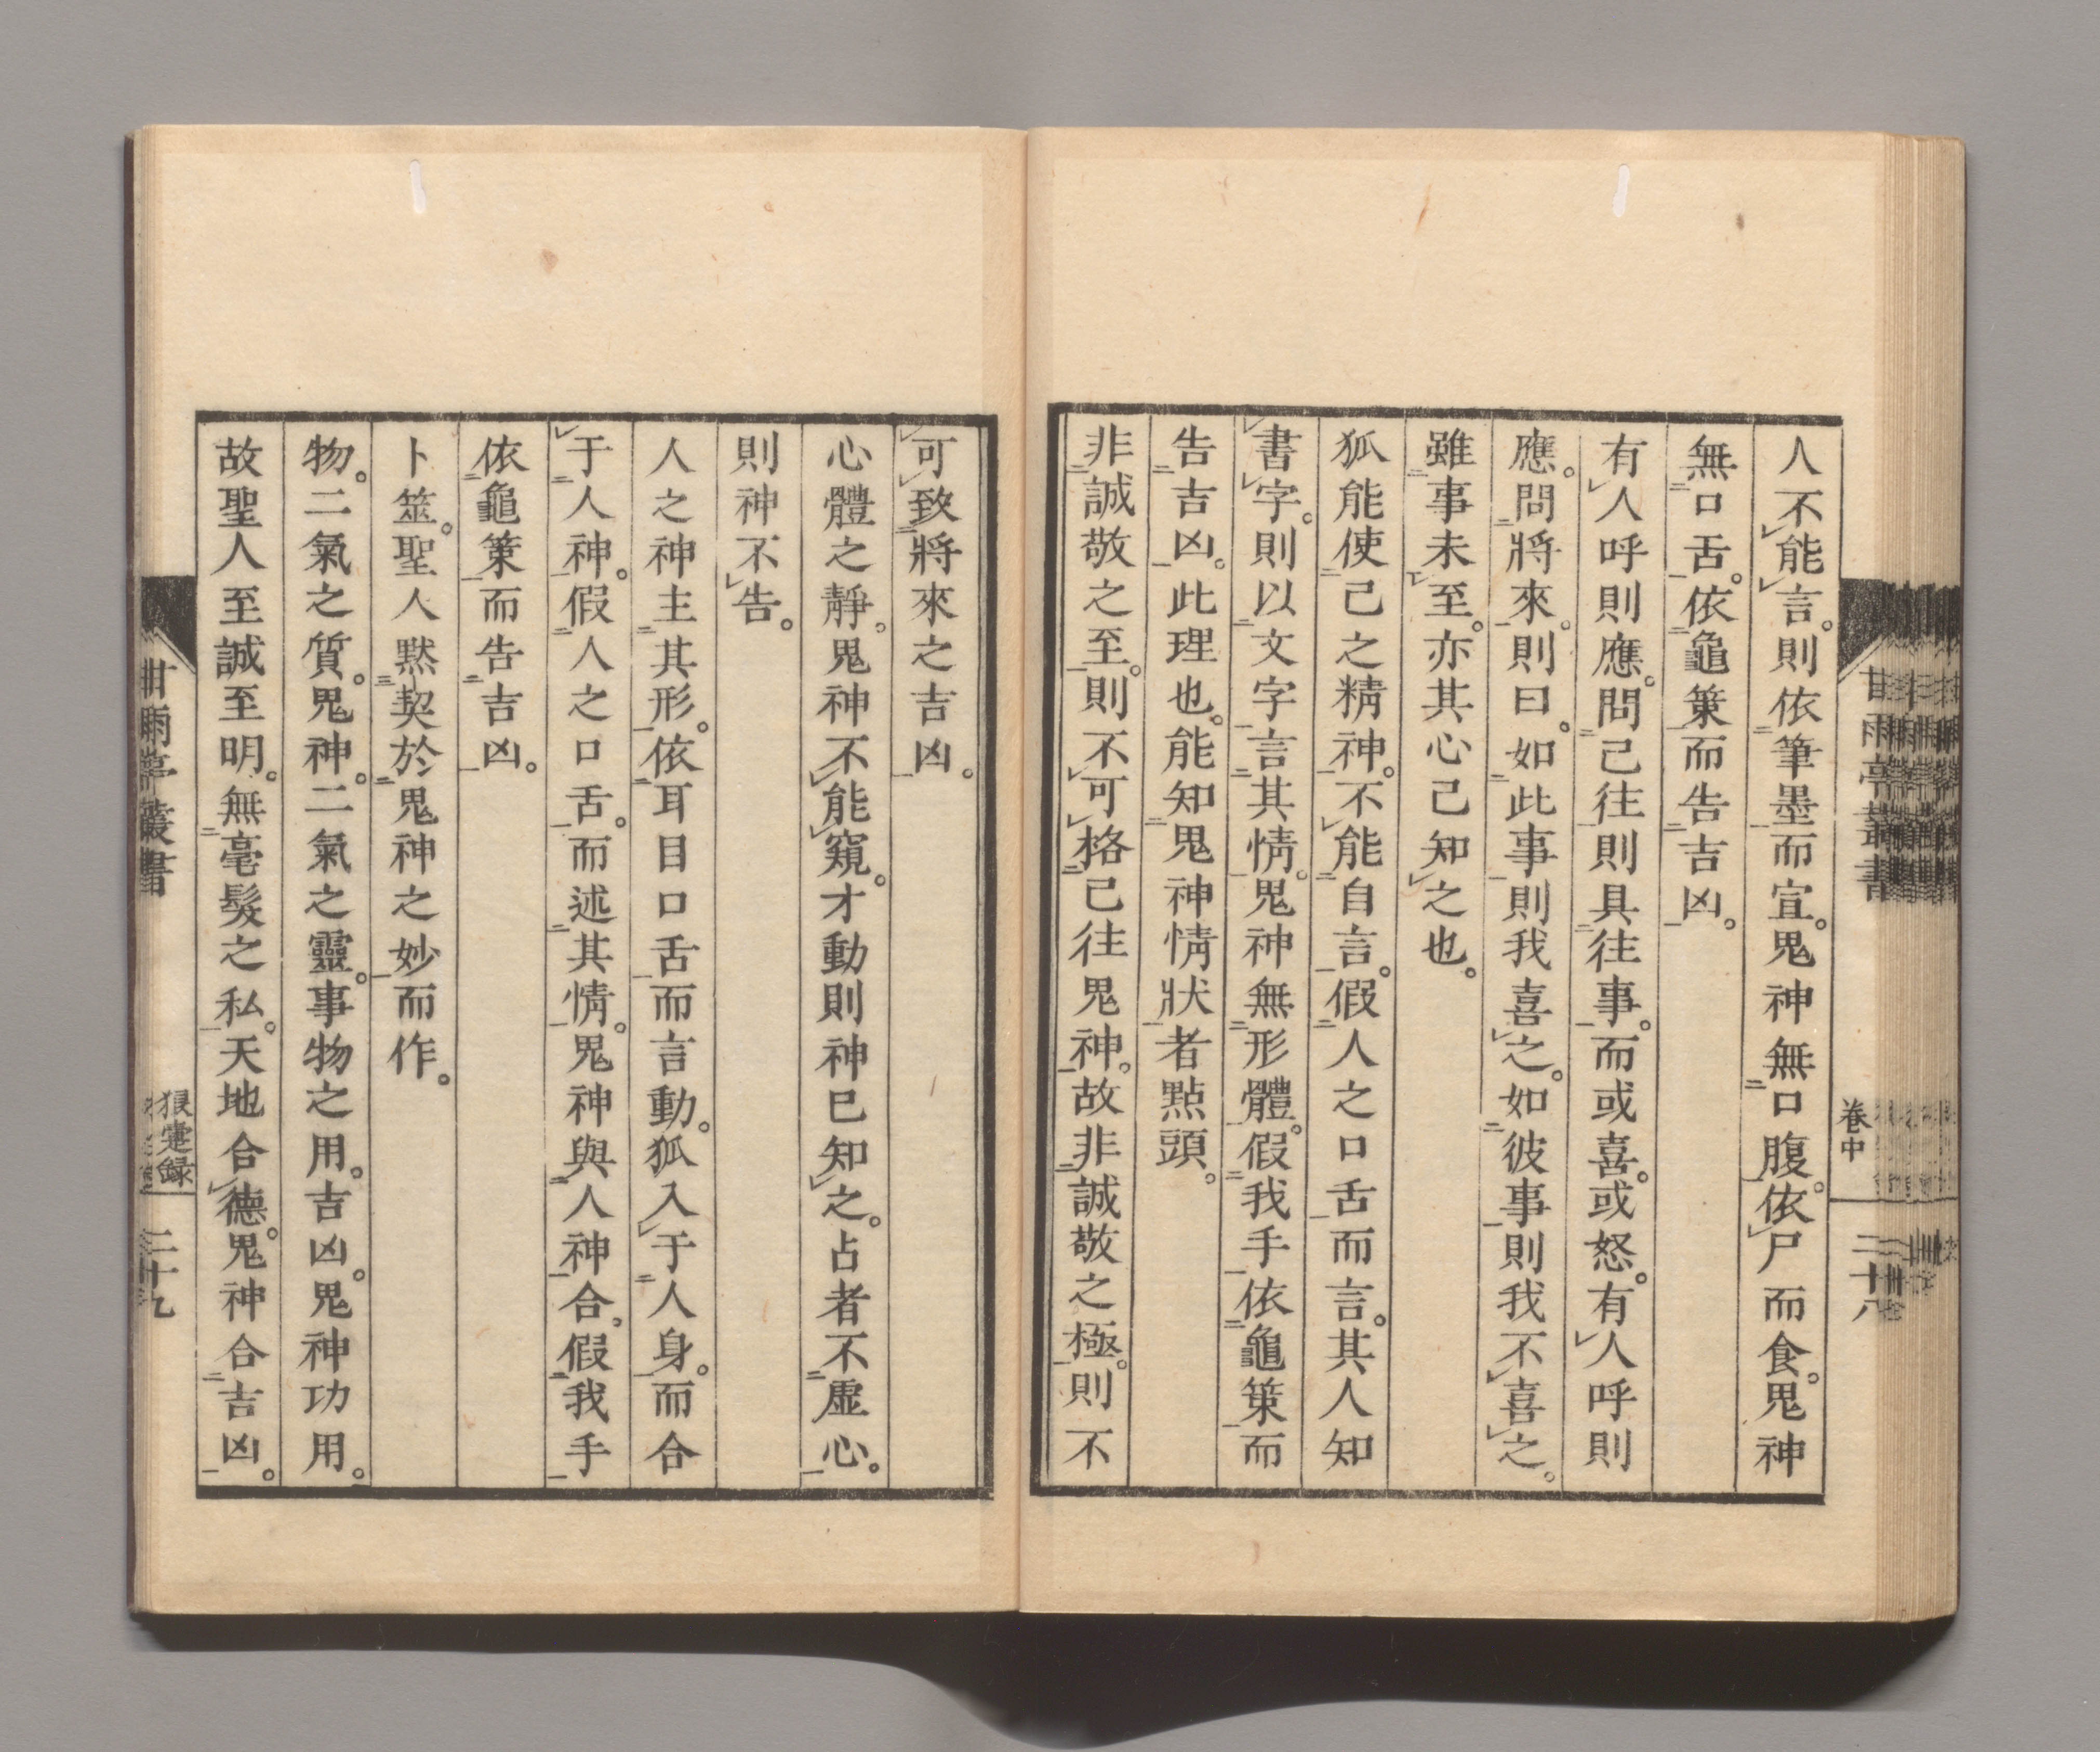 甘雨亭叢書
卷中
二十八
人不能言。則依筆墨而宣。鬼神無口腹。依尸而食。鬼神
無口舌。依龜筴而告吉凶。
有人呼則應。問已往則具往事。而或喜。或怒。有人呼則
應。問將來。則曰。如此事則我喜之。如彼事則我不喜之。
雖事未至。亦其心已知之也。
狐能使己之精神。不能自言。假人之口舌而言。其人知
書字。則以文字言其情。鬼神無形體。假我手依龜筴而
告吉凶。此理也。能知鬼神情狀者點頭。
非誠敬之至。則不可格已往鬼神。故非誠敬之極。則不
可致將來之吉凶。
心體之靜。鬼神不能窺。才動則神已知之。占者不虛心。
則神不告。
人之神主其形。依耳目口舌而言動。狐入于人身。而合
于人神。假人之口舌。而述其情。鬼神與人神合。假我手
依龜筴而告吉凶。
卜筮。聖人默契於鬼神之妙而作。
物。二氣之質。鬼神。二氣之靈。事物之用。吉凶。鬼神功用。
故聖人至誠至明。無毫髮之私。天地合德。鬼神合吉凶。
甘雨亭叢書
狼疐録
二十九